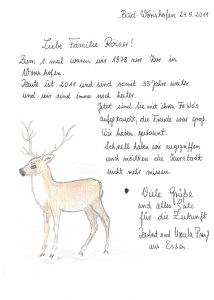 Bad-Wörishofen 24.9.2011
Liebe Familie Rösser!
Zum 1. mal waren wir 1978 zur Kur in
Wörishofen.
Heute ist 2011 und sind somit 33 Jahre weiter
und wir sind immer noch heiter.
Jetzt sind Sie mit ihren FeWo's
aufgetaucht, die Freude war groß.
Wir haben gestaunt.
Schnell haben wir zugegriffen
und möchten die Kurstadt
nicht mehr missen.
Viele Grüße
und alles Gute
für die Zukunft
und Ursula
aus Essen.